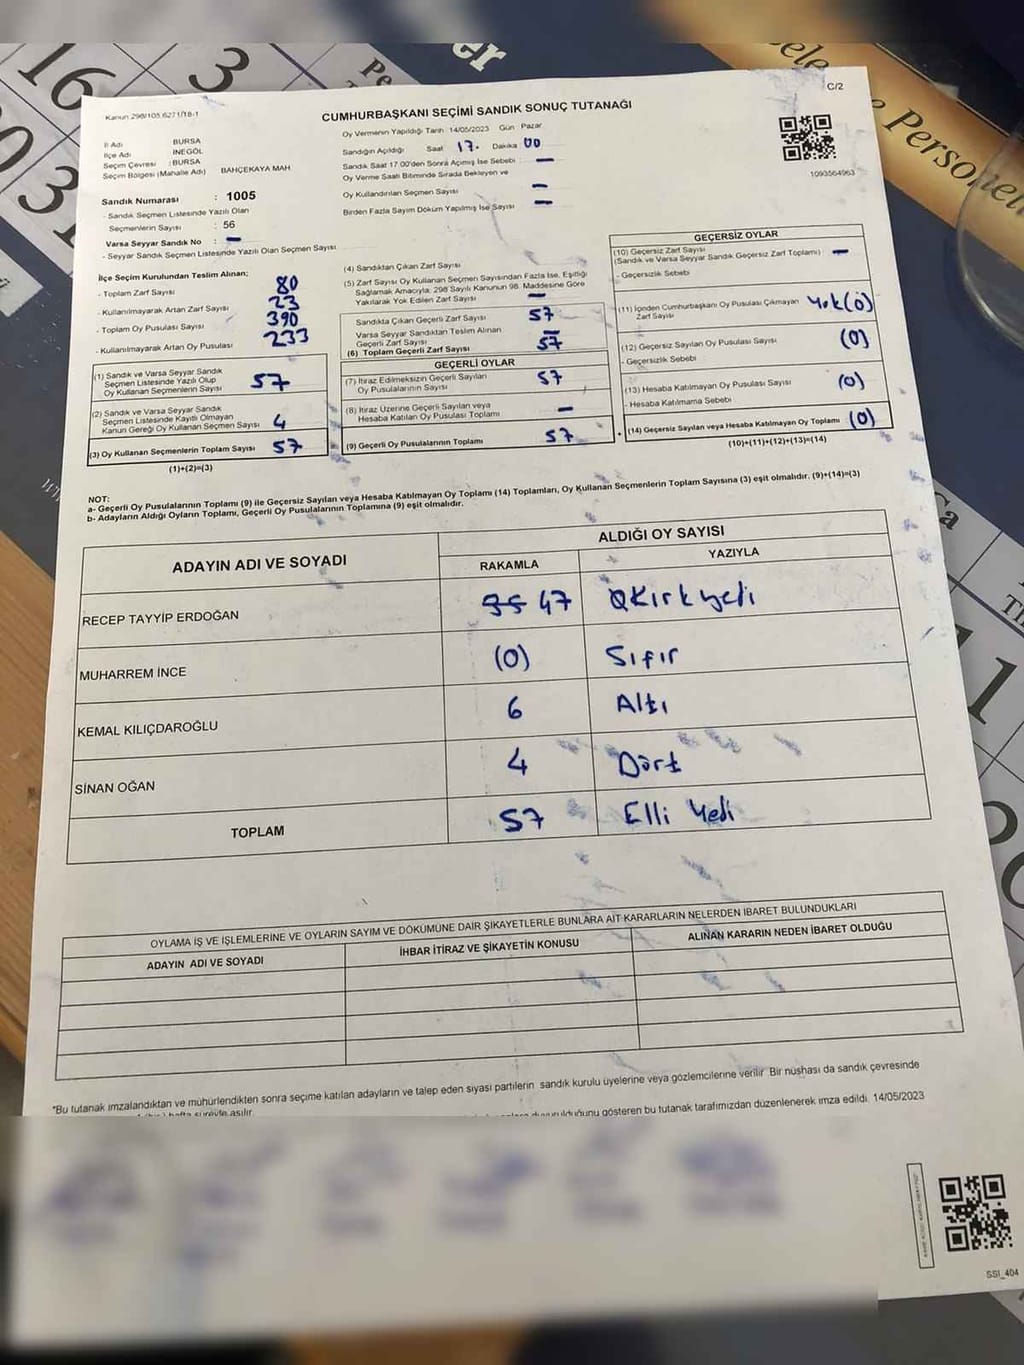 16
3
Pe
er
C/2
Kanun 298/105 6271/18-1
CUMHURBAŞKANI SEÇİMİ SANDIK SONUÇ TUTANAĞI
İl Adı BURSA
İlçe Adı İNEGÖL
Seçim Çevresi : BURSA
Seçim Bölgesi (Mahalle Adı) BAHÇEKAYA MAH
Sandık Numarası : 1005
- Sandık Seçmen Listesinde Yazılı Olan
Seçmenlerin Sayısı : 56
Varsa Seyyar Sandık No : -
- Seyyar Sandık Seçmen Listesinde Yazılı Olan Seçmen Sayısı
Oy Vermenin Yapıldığı Tarih 14/05/2023 Gün : Pazar
Sandığın Açıldığı Saat 17. Dakika 00
Sandık Saat 17.00'den Sonra Açılmış İse Sebebi : -
Oy Verme Saati Bitiminde Sırada Bekleyen ve
Oy Kullandırılan Seçmen Sayısı -
Birden Fazla Sayım Döküm Yapılmış İse Sayısı -
1093564963
İlçe Seçim Kurulundan Teslim Alınan;
- Toplam Zarf Sayısı 80
- Kullanılmayarak Artan Zarf Sayısı 23
- Toplam Oy Pusulası Sayısı 390
- Kullanılmayarak Artan Oy Pusulası 233
(1) Sandık ve Varsa Seyyar Sandık
Seçmen Listesinde Yazılı Olup
Oy Kullanan Seçmenlerin Sayısı 57
(2) Sandık ve Varsa Seyyar Sandık
Seçmen Listesinde Kayıtlı Olmayan
Kanun Gereği Oy Kullanan Seçmen Sayısı 4
(3) Oy Kullanan Seçmenlerin Toplam Sayısı 57
(1)+(2)=(3)
(4) Sandıktan Çıkan Zarf Sayısı
(5) Zarf Sayısı Oy Kullanan Seçmen Sayısından Fazla İse, Eşitliği
Sağlamak Amacıyla; 298 Sayılı Kanunun 98. Maddesine Göre
Yakılarak Yok Edilen Zarf Sayısı -
Sandıkta Çıkan Geçerli Zarf Sayısı 57
Varsa Seyyar Sandıktan Teslim Alınan
Geçerli Zarf Sayısı -
(6) Toplam Geçerli Zarf Sayısı 57
GEÇERLİ OYLAR
(7) İtiraz Edilmeksizin Geçerli Sayılan
Oy Pusulalarının Sayısı 57
(8) İtiraz Üzerine Geçerli Sayılan veya
Hesaba Katılan Oy Pusulası Toplamı -
(9) Geçerli Oy Pusulalarının Toplamı 57
GEÇERSİZ OYLAR
(10) Geçersiz Zarf Sayısı
(Sandık ve Varsa Seyyar Sandık Geçersiz Zarf Toplamı) -
- Geçersizlik Sebebi
(11) İçinden Cumhurbaşkanı Oy Pusulası Çıkmayan
Zarf Sayısı Yok (0)
(12) Geçersiz Sayılan Oy Pusulası Sayısı (0)
- Geçersizlik Sebebi
(13) Hesaba Katılmayan Oy Pusulası Sayısı (0)
- Hesaba Katılmama Sebebi
(14) Geçersiz Sayılan veya Hesaba Katılmayan Oy Toplamı (0)
(10)+(11)+(12)+(13)=(14)
NOT:
a- Geçerli Oy Pusulalarının Toplamı (9) ile Geçersiz Sayılan veya Hesaba Katılmayan Oy Toplamı (14) Toplamları, Oy Kullanan Seçmenlerin Toplam Sayısına (3) eşit olmalıdır. (9)+(14)=(3)
b- Adayların Aldığı Oyların Toplamı, Geçerli Oy Pusulalarının Toplamına (9) eşit olmalıdır.
ADAYIN ADI VE SOYADI
ALDIĞI OY SAYISI
RAKAMLA YAZIYLA
RECEP TAYYİP ERDOĞAN 47 Kırk yedi
MUHARREM İNCE (0) Sıfır
KEMAL KILIÇDAROĞLU 6 Altı
SİNAN OĞAN 4 Dört
TOPLAM 57 Elli Yedi
OYLAMA İŞ VE İŞLEMLERİNE VE OYLARIN SAYIM VE DÖKÜMÜNE DAİR ŞİKAYETLERLE BUNLARA AİT KARARLARIN NELERDEN İBARET BULUNDUKLARI
ADAYIN ADI VE SOYADI İHBAR İTİRAZ VE ŞİKAYETİN KONUSU ALINAN KARARIN NEDEN İBARET OLDUĞU
*Bu tutanak imzalandıktan ve mühürlendikten sonra seçime katılan adayların ve talep eden siyasi partilerin sandık kurulu üyelerine veya gözlemcilerine verilir. Bir nüshası da sandık çevresinde
hafta süreyle asılır.
duyurulduğunu gösteren bu tutanak tarafımızdan düzenlenerek imza edildi. 14/05/2023
SSI_404